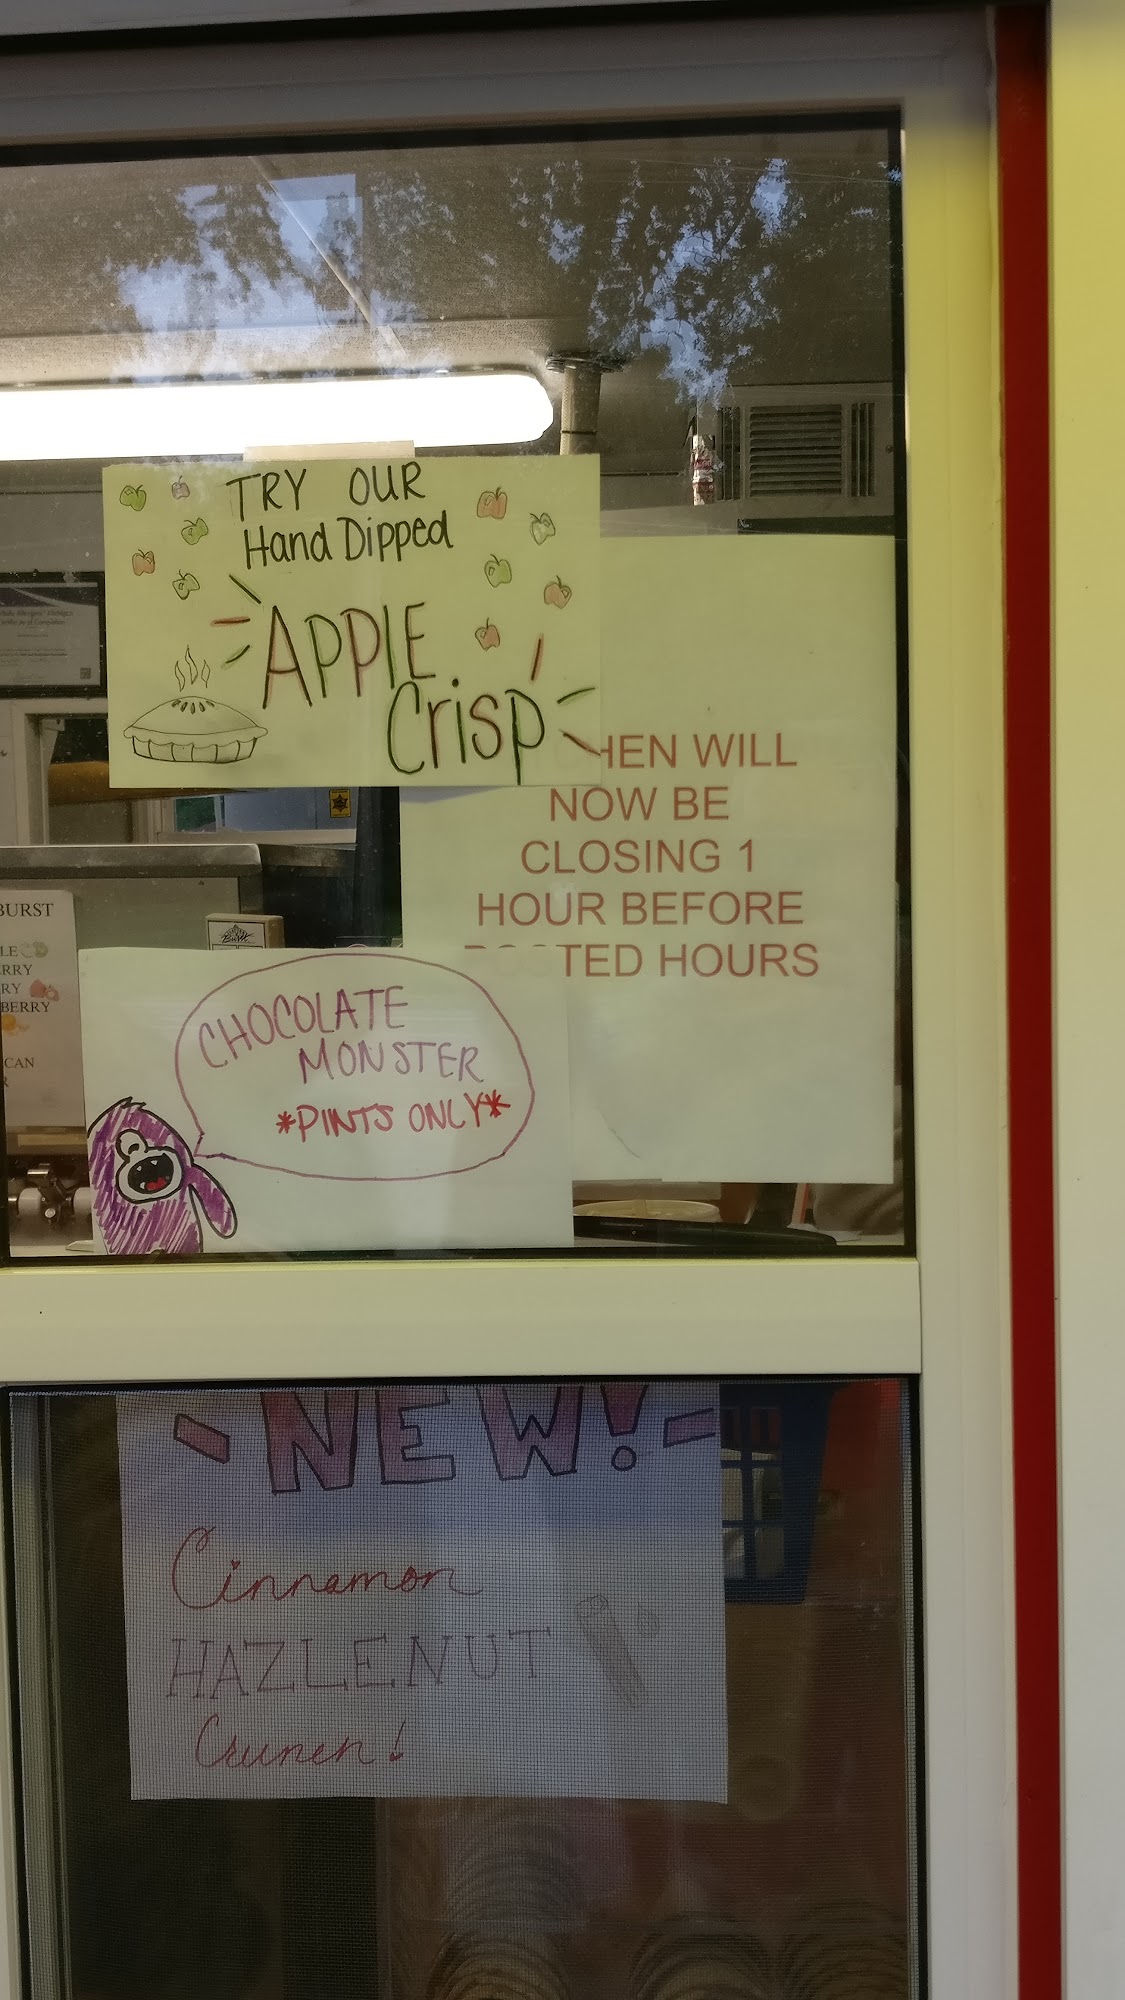 TRY OUR
Hand Dipped
APPLE
Crisp
HEN WILL
NOW BE
CLOSING 1
HOUR BEFORE
POSTED HOURS
BURST
LE
RRY
RY
BERRY
CAN
R
CHOCOLATE
MONSTER
*PINTS ONLY*
NEW!
Cinnamon
HAZLENUT
Crunch!